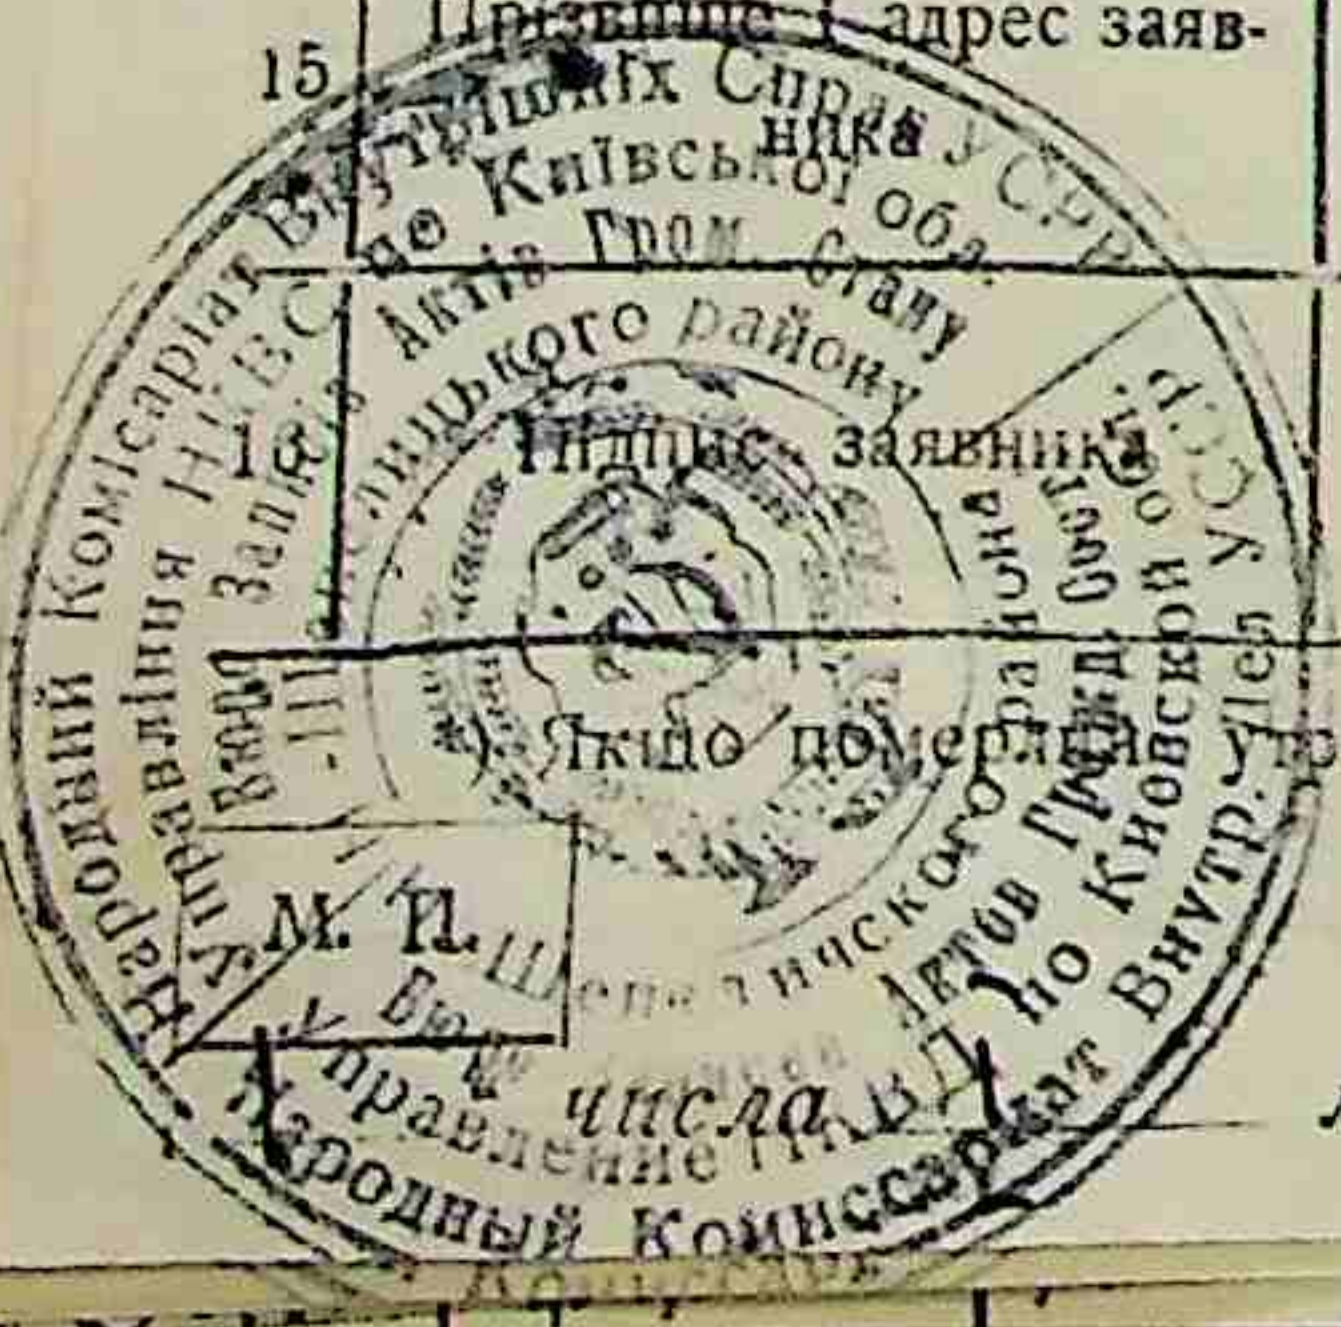 Прізвище і адрес заяв-
15
ника
16
Підпис заявника
) Якщо померлий
М. П.
числа
Народний Комісаріат Внутрішніх Справ УСРР
Управління НКВС по Київської обл.
Бюро Записів Актів Гром. Стану
району
Народный Комиссариат Внутр. Дел УССР
Управление НКВД по Киовской обл.
Бюро Актов Гражд. Сост.
района